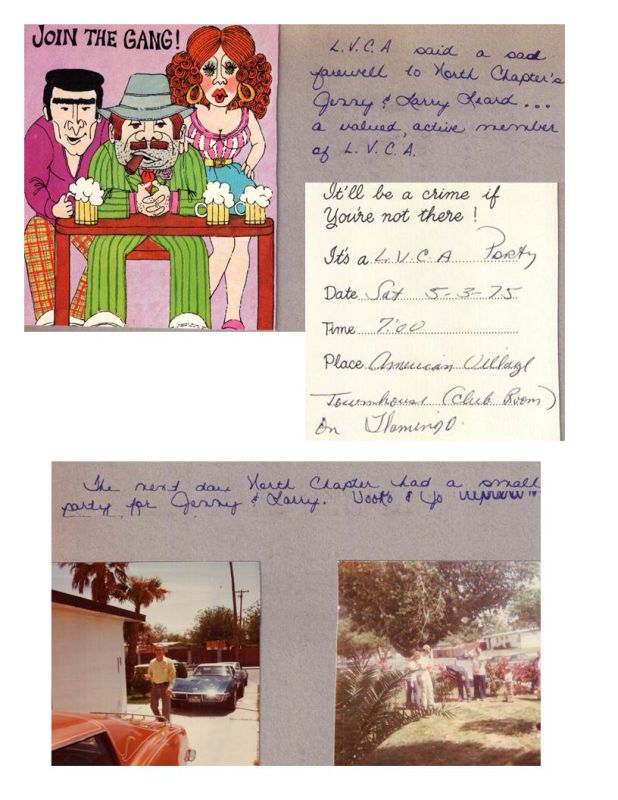 JOIN THE GANG!
L.V.C.A said a sad
farewell to North Chapter's
Jenny & Larry Heard...
a valued, active member
of L.V.C.A.
It'll be a crime if
You're not there!
It's a L.V.C.A Party
Date Sat 5-3-75
Time 7:00
Place American Village
Townhouse (Club Room)
On Flamingo.
The next day North Chapter had a small
party for Jenny & Larry. &